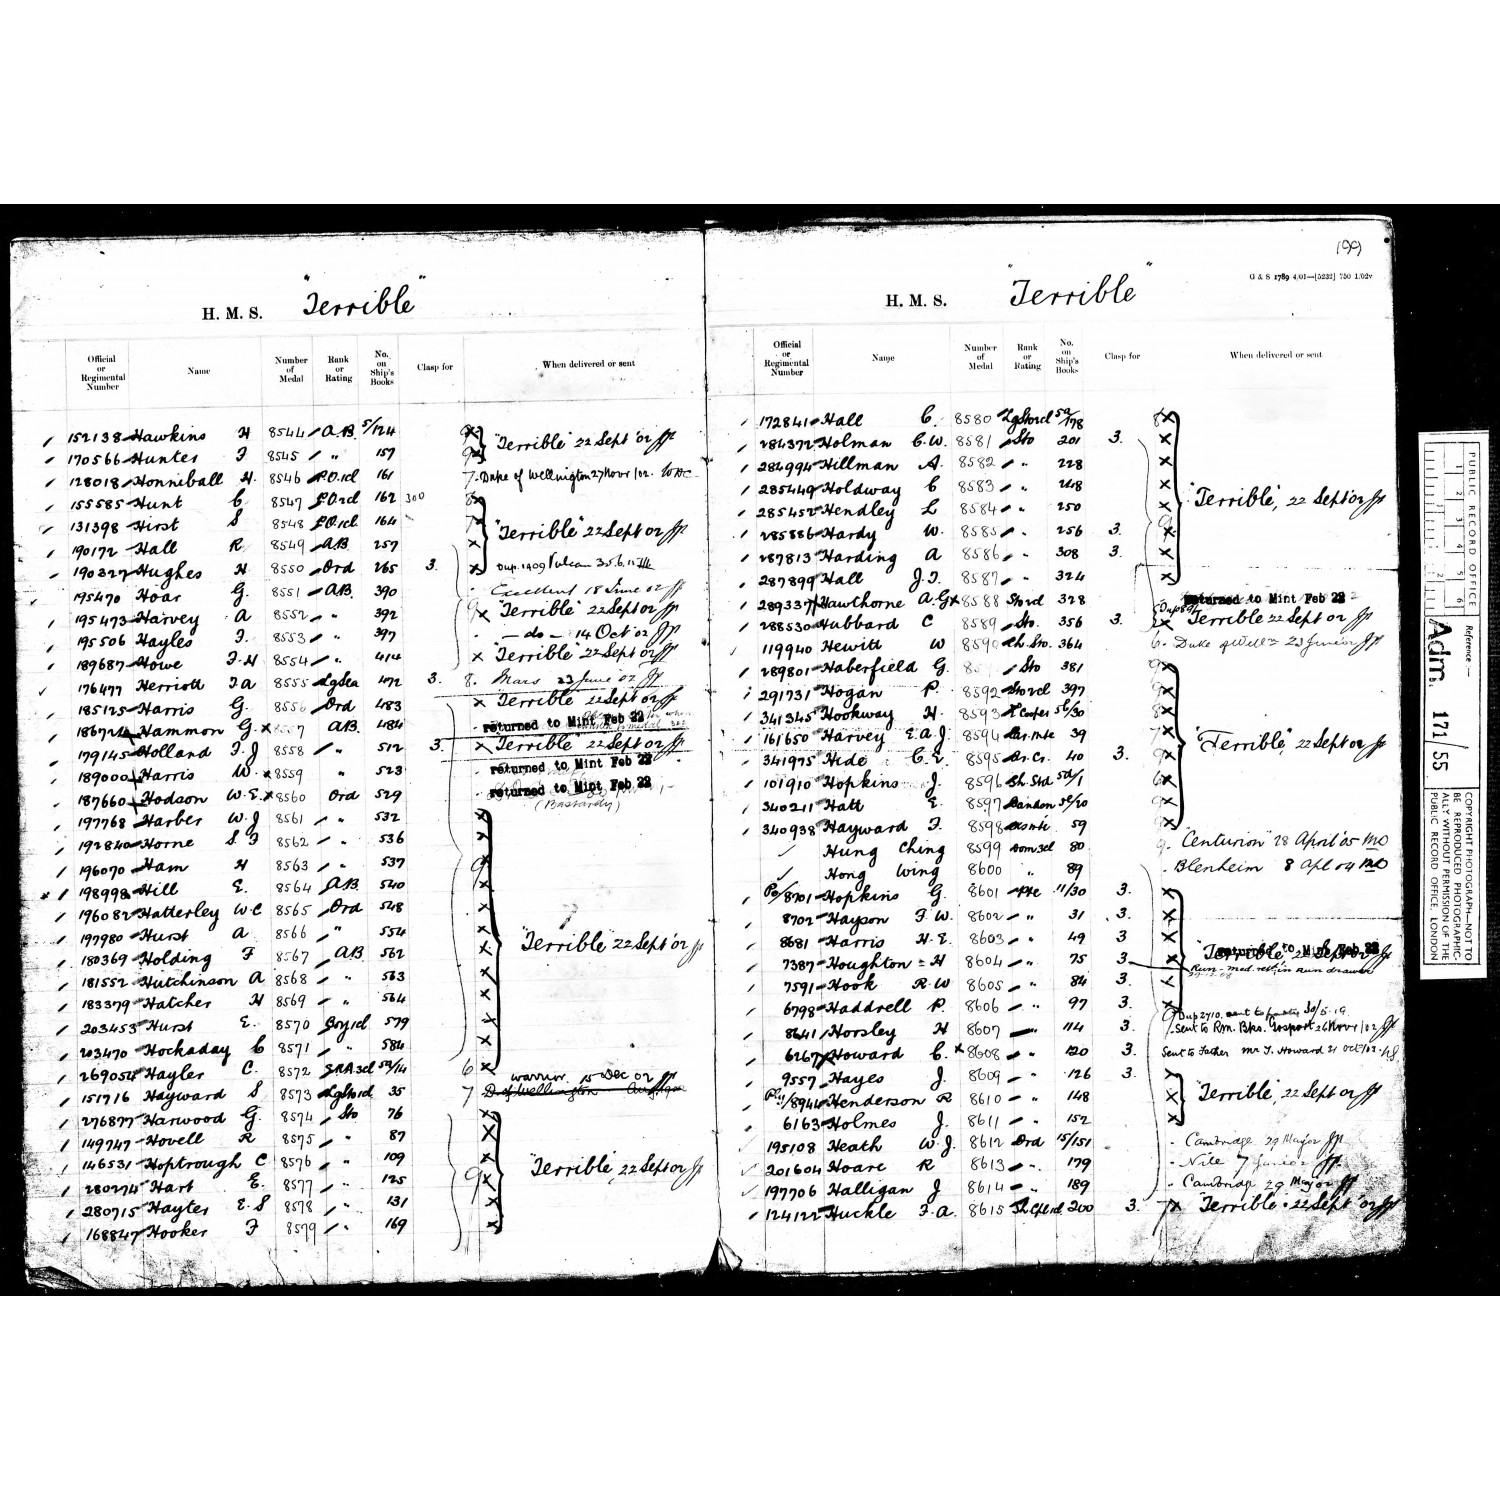 199
G & S 1789 4/01—[5232] 750 1/02v
H. M. S. "Terrible"
Official or Regimental Number Name Number of Medal Rank or Rating No. on Ship's Books Clasp for When delivered or sent
152138 Hawkins H 8544 A.B. 5/124
170566 Hunter F 8545 " 157 "Terrible" 22 Sept '02
128018 Honniball H. 8546 P.O.1cl 161 7. Duke of Wellington 27 Novr /02.
155585 Hunt C 8547 P.O.2cl 162 300
131398 Hirst S 8548 P.O.1cl. 164 "Terrible" 22 Sept 02
190172 Hall R 8549 A.B. 257
190327 Hughes H 8550 Ord 265 3. Dup. 1409 Vulcan
195470 Hoar G. 8551 A.B. 390 Excellent 18 June 02
195473 Harvey A 8552 " 392 "Terrible" 22 Sept 02
195506 Hayles F. 8553 " 397 — do — 14 Oct '02
189687 Howe F. H 8554 " 414 "Terrible" 22 Sept 02
176477 Herriott F A 8555 Lg Sea 472 3. 8. Mars 23 June 02
185125 Harris G. 8556 Ord 483 "Terrible" 22 Sept 02
Hammon G. A.B. 484 returned to Mint Feb 22
179145 Holland F. J 8558 " 512 3. "Terrible" 22 Sept 02
189000 Harris W. 8559 " 523 returned to Mint Feb 22
187660 Hodson W. E. 8560 Ord 529 returned to Mint Feb 22
(Bastardy)
197768 Harber W. J 8561 " 532
192840 Horne S. F 8562 " 536
196070 Ham H 8563 " 537
198998 Hill E. 8564 A.B. 540
196082 Hatterley W C 8565 Ord 548
197980 Hurst A 8566 " 554
180369 Holding F 8567 A.B. 562 "Terrible" 22 Sept 02
181552 Hutchinson A 8568 " 563
183379 Hatcher H 8569 " 564
203453 Hurst E. 8570 Boy 1cl 579
203470 Hockaday C 8571 " 584
269054 Hayler C. 8572 E.R.A. 3cl 50/14 6
151716 Hayward S 8573 Lg Sto 1cl 35 7 Warrior 15 Dec 02 D. of Wellington
276877 Harwood G. 8574 Sto 76
149747 Hovell R 8575 " 87
146531 Hoptrough C 8576 " 109
280274 Hart E. 8577 " 125 "Terrible" 22 Sept 02
280715 Hayter E. S 8578 " 131
168847 Hooker F 8579 " 169
H. M. S. "Terrible"
Official or Regimental Number Name Number of Medal Rank or Rating No. on Ship's Books Clasp for When delivered or sent
172841 Hall C. 8580 Lg Sto cl 50/178
284372 Holman C. W. 8581 Sto 201 3.
284994 Hillman A. 8582 " 228
285449 Holdway C 8583 " 248 "Terrible", 22 Sept 02
285452 Hendley L 8584 " 250
285886 Hardy W. 8585 " 256 3.
287813 Harding A 8586 " 308 3.
287899 Hall J. F. 8587 " 324
289337 Hawthorne A. G 8588 Sto cl 328 returned to Mint Feb 22
288530 Hubbard C 8589 Sto. 356 3. "Terrible 22 Sept 02
119940 Hewitt W 8590 Ch. Sto. 364 6. Duke of Well 23 June 02
289801 Haberfield G. Sto 381
291731 Hogan P. 8592 Sto 2cl 397
341345 Hookway H. 8593 56/30
161650 Harvey E. A. J. 8594 39
341975 Hide C. E. 8595 40 3. "Terrible", 22 Sept 02
101910 Hopkins J. 8596 Sh. Std 50/1
340211 Hatt E. 8597 Bandsm 50/20
340938 Hayward F. 8598 59
Hung Ching 8599 Dom 3cl 80 "Centurion" 28 April '05
Hong Wing 8600 " 89 Blenheim 8 Apl 04
Po/8701 Hopkins G. 8601 Pte 11/30 3.
8702 Hayson F. W. 8602 " 31 3.
8681 Harris H. E. 8603 " 49 3.
7387 Houghton H 8604 " 75 3 "Terrible" 22 Sept 02 returned to Mint Feb 22
Run - med. ret. in Run drawer
7591 Hook R. W 8605 " 84 3.
6798 Haddrell P. 8606 " 97 3. Dup 2710.
8641 Horsley H 8607 " 114 3. Sent to Rm. Bks. Gosport 26 Novr /02
6267 Howard C. 8608 " 120 3. Sent to Father Mr J. Howard 21 Oct /02
9557 Hayes J. 8609 " 126 3.
Ply/8944 Henderson R 8610 " 148 "Terrible", 22 Sept 02
6163 Holmes J. 8611 " 152
195108 Heath W. J. 8612 Ord 15/151 Cambridge 29 May 05
201604 Hoare R 8613 " 179 Nile 7 June 05
197706 Halligan J 8614 " 189 Cambridge 29 May 05
124122 Huckle F. A. 8615 200 3. 7 "Terrible" 22 Sept '02
PUBLIC RECORD OFFICE
Reference:—
Adm. 171/55
COPYRIGHT PHOTOGRAPH—NOT TO BE REPRODUCED PHOTOGRAPHICALLY WITHOUT PERMISSION OF THE PUBLIC RECORD OFFICE, LONDON